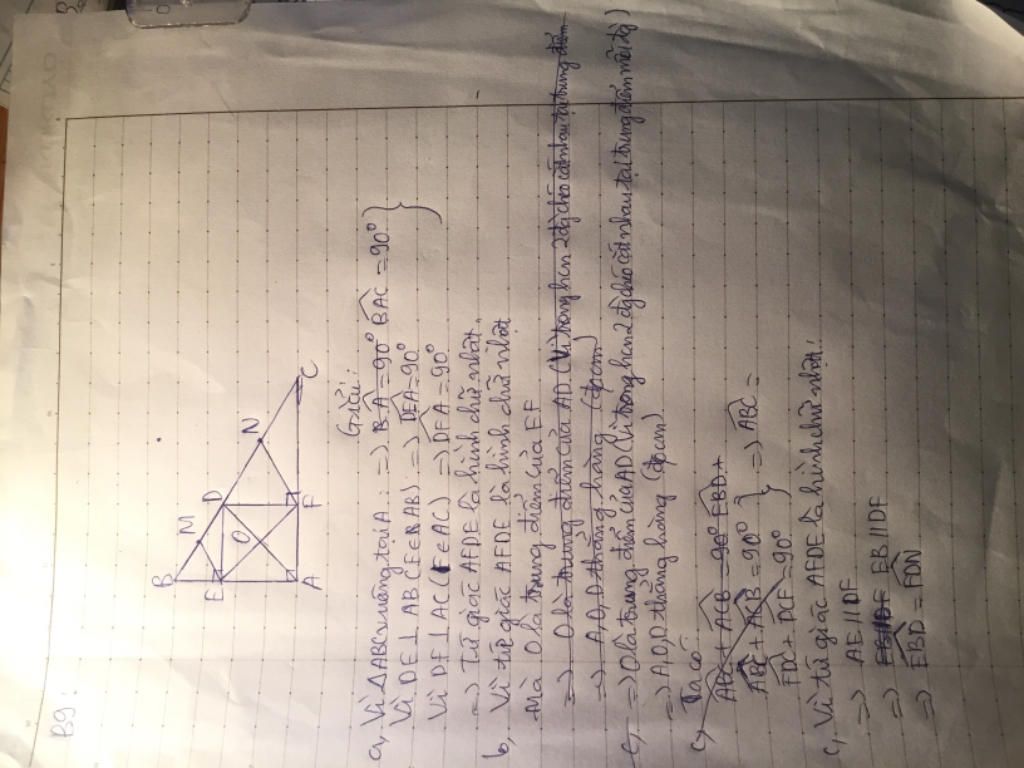 B9:
B
M
E
D
O
N
A
F
C
Giải:
a, Vì ΔABC vuông tại A: => B A = 90° BAC = 90°
Vì DE ⊥ AB (E ∈ AB) => DEA = 90°
Vì DF ⊥ AC (F ∈ AC) => DFA = 90°
=> Tứ giác AFDE là hình chữ nhật.
b, Vì tứ giác AFDE là hình chữ nhật
Mà O là trung điểm của EF
=> O là trung điểm của AD (Vì trong hcn 2 đg chéo cắt nhau tại trung điểm
=> A, O, D thẳng hàng (đpcm)
c, => O là trung điểm của AD (Vì trong hcn 2 đg chéo cắt nhau tại trung điểm mỗi đg)
=> A, O, D thẳng hàng (đpcm)
c, Ta có
ABC + ACB = 90° EBD +
ABC + ACB = 90° } => ABC =
FDC + DCF = 90°
c, Vì tứ giác AFDE là hình chữ nhật.
=> AE // DF
=> EB // DF
=> EBD = FDN